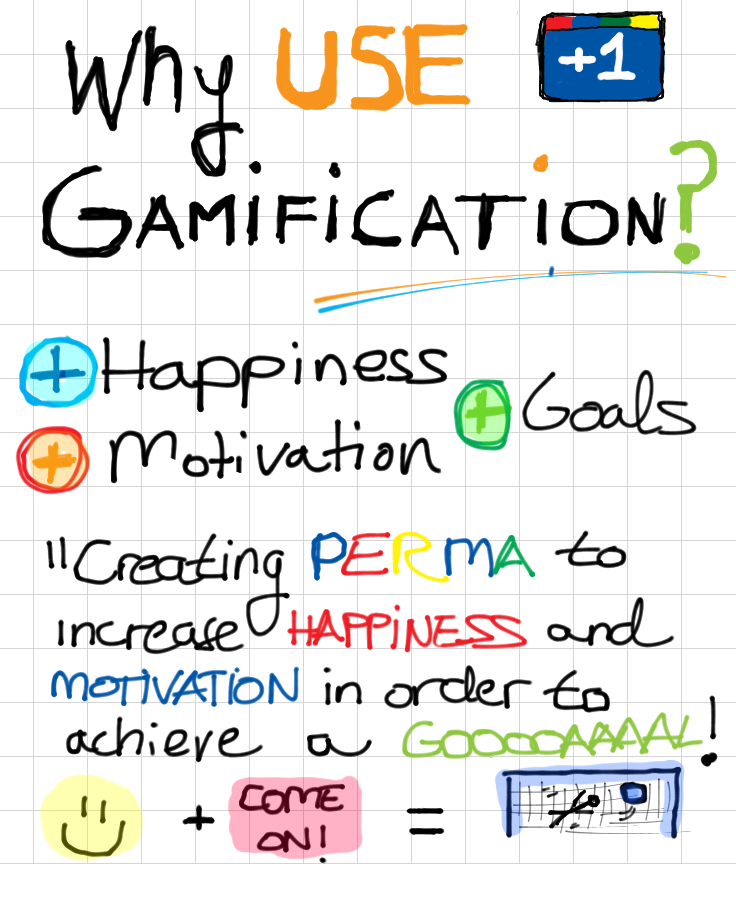 Why USE +1
GAMiFiCATiON?
+ Happiness
+ Goals
+ Motivation
"Creating PERMA to
increase HAPPiNESS and
MOTIVATiON in order to
achieve a GOOOOAAAAAL!
+ COME
ON! =